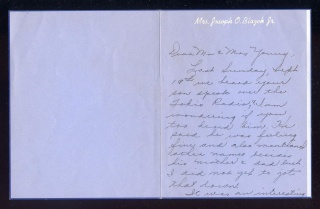 Mrs. Joseph O. Blazek Jr.
Dear Mr & Mrs Young,
Last Sunday, Sept
19th we heard your
son speak over the
Tokio Radio, & am
wondering if you
too heard him. He
said he was feeling
fine and also mentioned
other names besides
his mother & dad but
I did not get to jot
that down.
It was an interesting